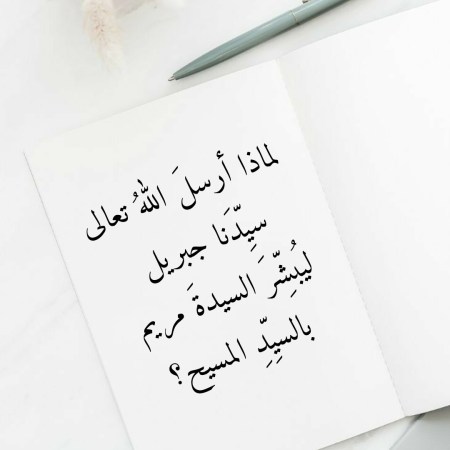 لماذا أرسلَ اللهُ تعالى
سيِدّنَا جبريل
ليَبُشِّرَ السيدةَ مريم
بالسيِدِّ المسيح؟